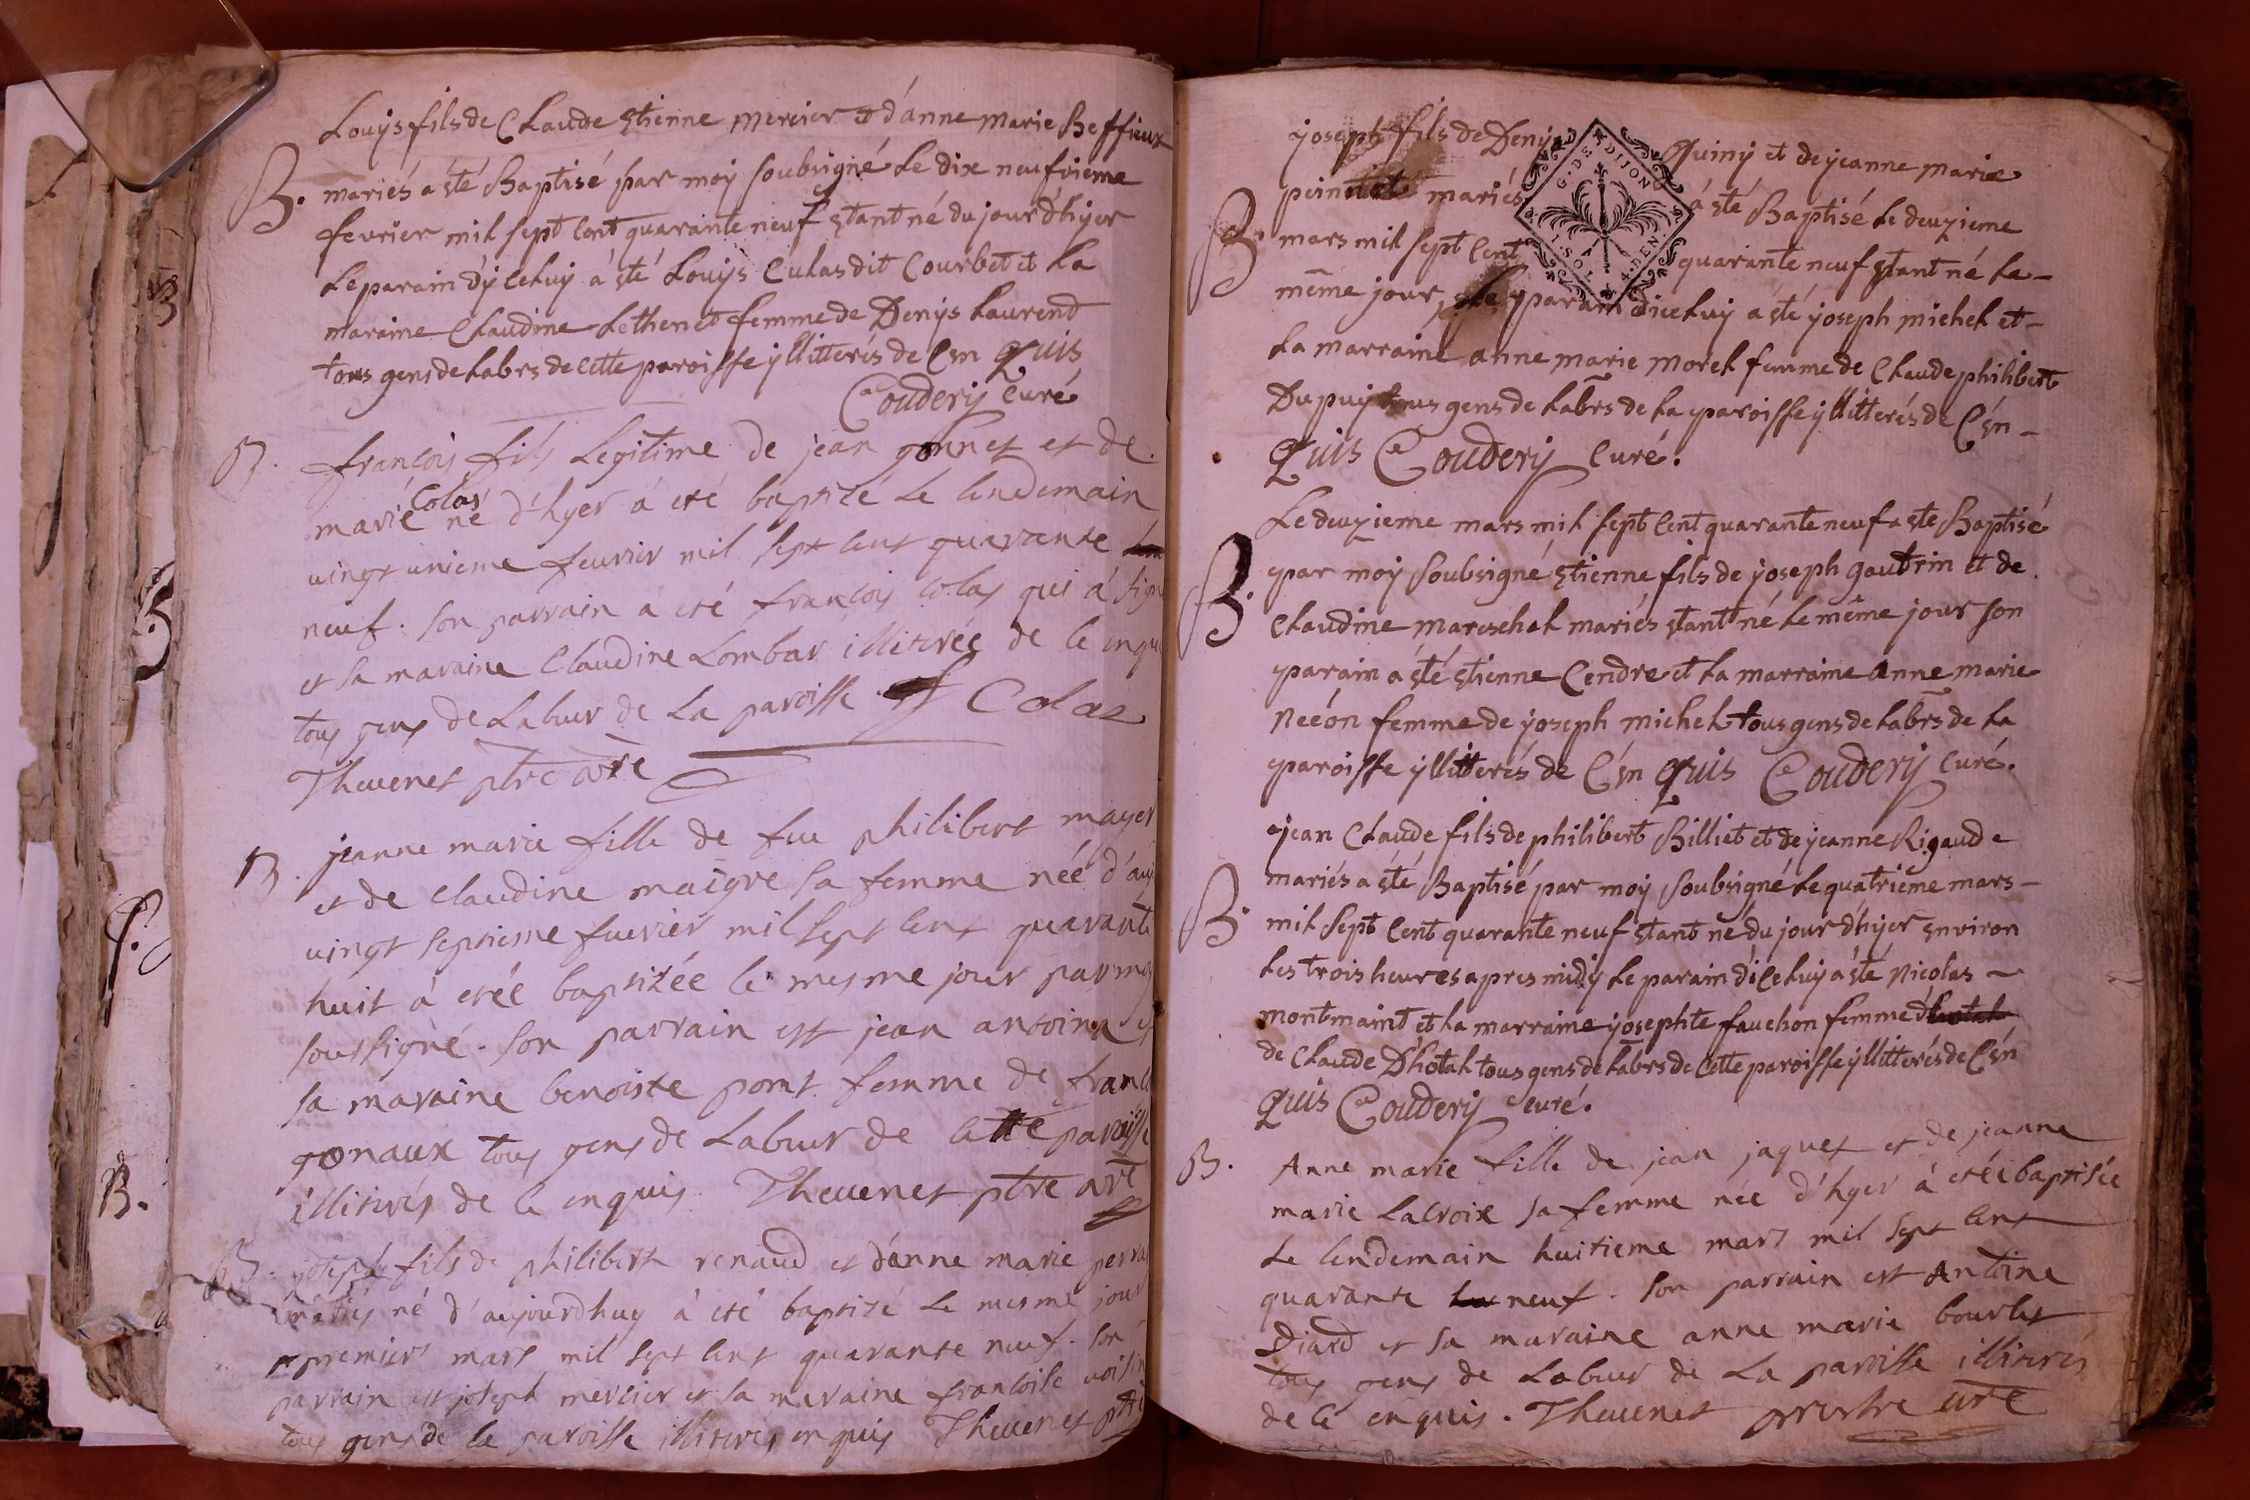 Louÿs fils de Claude Etienne Mercier et d'anne Marie Beffieux
B. mariés a été Baptisé par moÿ soubsigné Le dix neufvieme
fevrier mil sept Cent quarante neuf Etant né du jour d'hÿer
Le parain d'ÿ Celuÿ á été Louÿs Culas dit Courbet et La
maraine Claudine Lethenet femme de Denÿs Laurend
tous gens de Labrs de Cette paroisse ÿllitterés de Cen quis
Ca Couderÿ Curé
B. françois fils Legitime de jean gonnet et de
Colas
marie né d'hyer á eté baptizé Le lendemain
vingt unieme feuvrier mil sept cent quarante
neuf. son parrain á eté françois Colas qui á signé
et sa maraine Claudine Lombar illiterée de ce enquis
tous gens de Labeur de La paroisse Colas
Thevenet ptre vre
B. jeanne marie fille de feu philibert mayer
et de Claudine maigre sa femme néé d'auj
vingt septieme fuvrier mil sept cent quarante
huit á etéé baptizée le mesme jour par moy
soussigné. son parrain est jean antoine et
sa maraine benoiste pont femme de franc
gonaux tous gens de Labeur de cette paroisse
illiterés de ce enquis Thevenet ptre vre
B. joseph fils de philibert renaud et d'anne marie perra
mariés né d'aujourdhuy á eté baptizé Le mesme jour
premier mars mil sept cent quarante neuf. son
parrain est joseph mercier et sa maraine francoise voisin
tous gens de la paroisse illiterés enquis Thevenet ptre
ÿoseph fils de Denÿs Quinÿ et de jeanne marie
mariés á été Baptisé Le deuzieme
G. DE DIJON
1. SOL 4. DEN.
B. mars mil sept Cent quarante neuf Etant né Le
même jour, Le parain d'iceluÿ a été ÿoseph michel et
La marraine anne marie Morel femme de Claude philibert
Dupuÿ tous gens de Labrs de La paroisse ÿllitterés de Cen
quis Ca Couderÿ Curé.
Le deuzieme mars mil sept Cent quarante neuf a été Baptisé
B. par moÿ soubsigné Etienne fils de ÿoseph gautrin et de
Claudine Mareschal mariés Etant né Le même jour son
parain á été Etienne Cendre et La marraine anne marie
Néeón femme de ÿoseph michel tous gens de Labrs de La
paroisse ÿllitterés de Cen quis Ca Couderÿ Curé.
jean Claude fils de philibert Billiet et de jeanne Rigaude
mariés a été Baptisé par moÿ soubsigné Le quatrième mars
B. mil sept Cent quarante neuf Etant né du jour d'hÿer Environ
Les trois heures apres midÿ Le parain d'iceluÿ a été Nicolas
montmaint et La marraine ÿosephte fauchon femme
de Claude D'hotal tous gens de Labrs de Cette paroisse ÿllitterés de Cen
quis Ca Couderÿ Curé.
B. Anne marie fille de jean jaquet et de jeanne
marie Lacroix sa femme née d'hyer á etéé baptisée
Le lendemain huitieme mars mil sept cent
quarante neuf. son parrain est Antoine
Diard et sa maraine anne marie bourlet
tous gens de Labeur de La paroisse illiterés
de ce enquis. Thevenet prestre vre